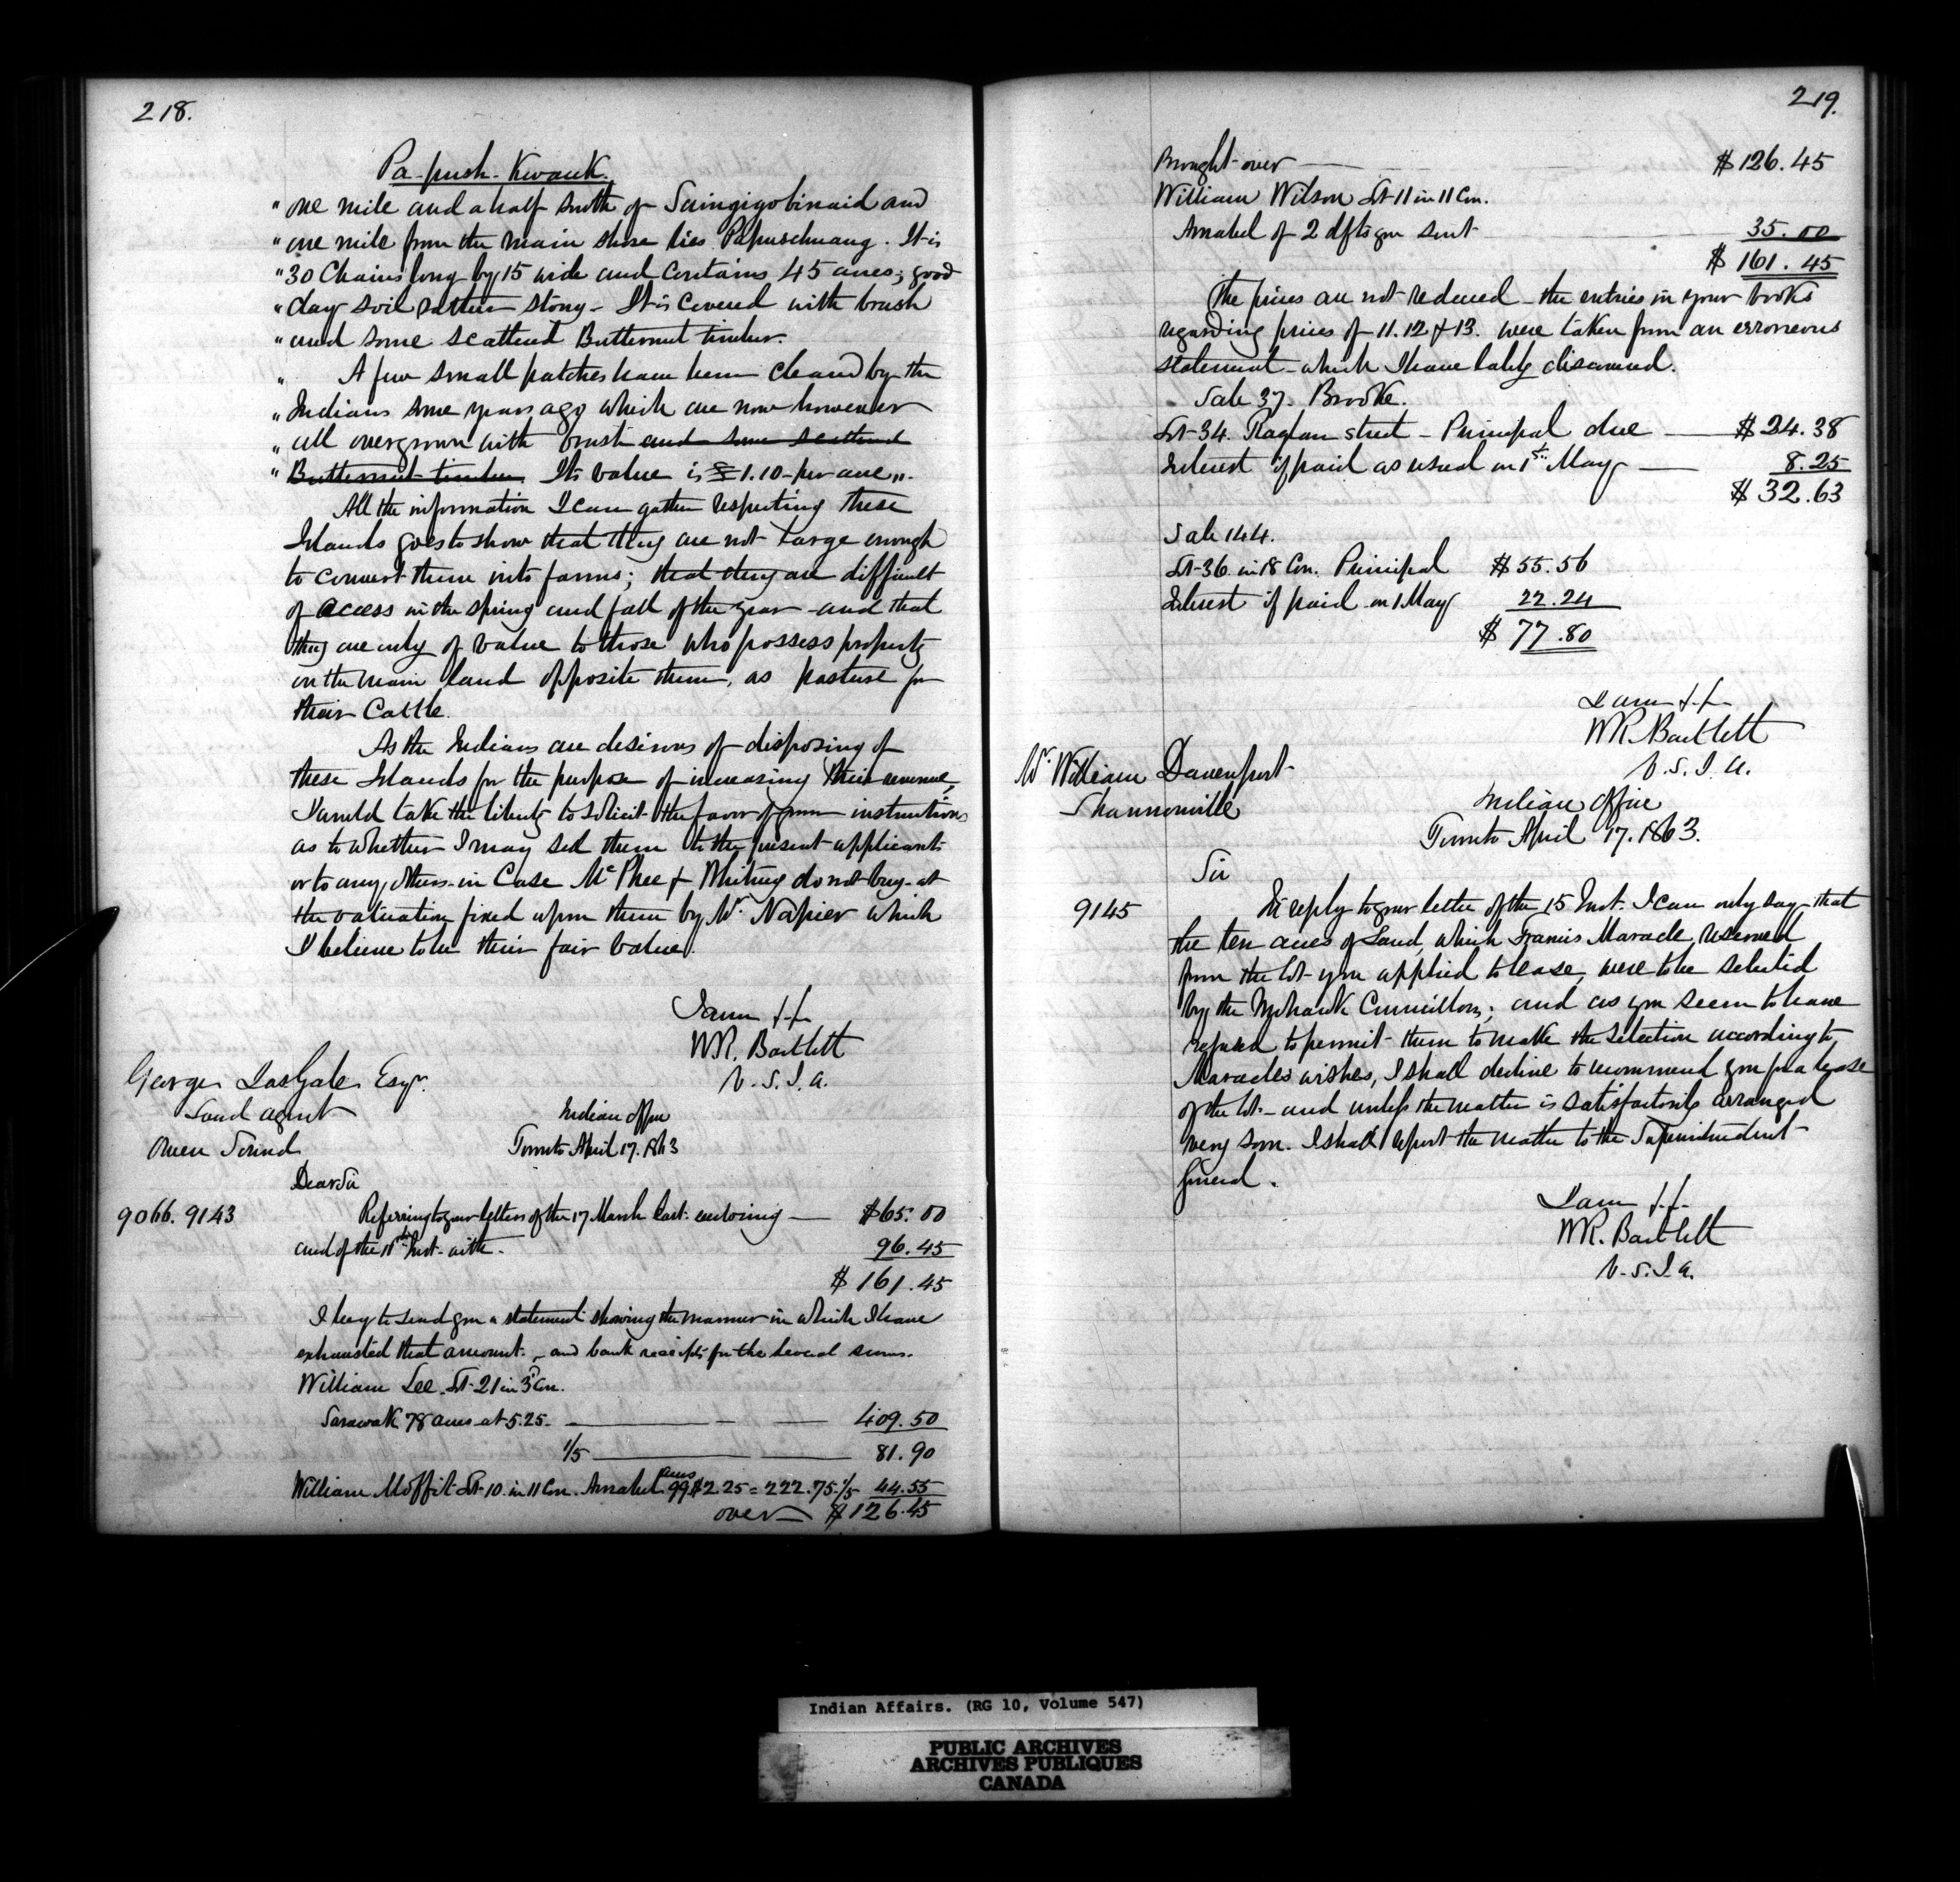 218.
Pa-push-Kwauk.
" one mile and a half south of Saingigobinaid and
" one mile from the main shore lies Papuschwang. It is
" 30 Chains long by 15 wide and contains 45 acres; good
" clay soil rather stony - It is covered with brush
" and some scattered Butternut timber.
" A few small patches have been cleared by the
" Indians some years ago which are now however
" all overgrown with brush and some scattered
" Butternut timber. Its value is $1.10 per acre ".
All the information I can gather respecting these
Islands goes to show that they are not large enough
to convert them into farms; that they are difficult
of access in the spring and fall of the year - and that
they are only of value to those who possess property
on the main land opposite them, as pasture for
their Cattle.
As the Indians are desirous of disposing of
these Islands for the purpose of increasing their revenue,
I would take the liberty to solicit the favor of your instructions
as to whether I may sell them to the present applicants
or to any others in Case McPhee & Whiting do not buy at
the valuation fixed upon them by Mr. Napier which
I believe to be their fair value.
I am &c
WR. Bartlett
V.S.I.A.
George Jas Gale Esqr.
Land agent
Owen Sound
Indian Office
Toronto April 17. 1863
Dear Sir
9066. 9143
Referring to your letters of the 17 March last enclosing — $65.00
and of the 11th Inst. with - 96.45
$161.45
I beg to send you a statement showing the manner in which I have
exhausted that amount - and bank receipts for the several sums.
William Lee. Lt. 21 in 3d Con.
Sarawak 78 acres at 5.25. — 409.50
1/5 — 81.90
William Moffit Lt. 10. in 11 Con. Amabel 99 acres $2.25 = 222.75. 1/5 44.55
over $126.45
219.
Brought over — $126.45
William Wilson Lt. 11 in 11 Con.
Amabel of 2 dfts you sent 35.00
$161.45
The prices are not reduced - the entries in your books
regarding prices of 11. 12 & 13. were taken from an erroneous
statement - which I have lately discovered.
Sale 37. Brooke.
Lt. 34. Raglan street - Principal due — $24.38
Interest if paid as usual on 1st May — 8.25
$32.63
Sale 144.
Lt. 36. in 18 Con. Principal $55.56
Interest if paid on 1 May 22.24
$77.80
I am &c
WR. Bartlett
V.S.I.A.
Mr. William Davenport
Shannonville
Indian Office
Toronto April 17. 1863.
Sir
9145
In reply to your letter of the 15 Inst. I can only say that
the ten acres of Land, which Francis Maracle reserved
from the lot you applied to lease, were to be selected
by the Mohawk Councillors; and as you seem to have
refused to permit them to make the selection according to
Maracle's wishes, I shall decline to recommend you for a lease
of the lot - and unless the matter is satisfactorily arranged
very soon. I shall report the matter to the Superintendent
General.
I am &c
WR. Bartlett
V.S.I.A.
Indian Affairs. (RG 10, Volume 547)
PUBLIC ARCHIVES
ARCHIVES PUBLIQUES
CANADA